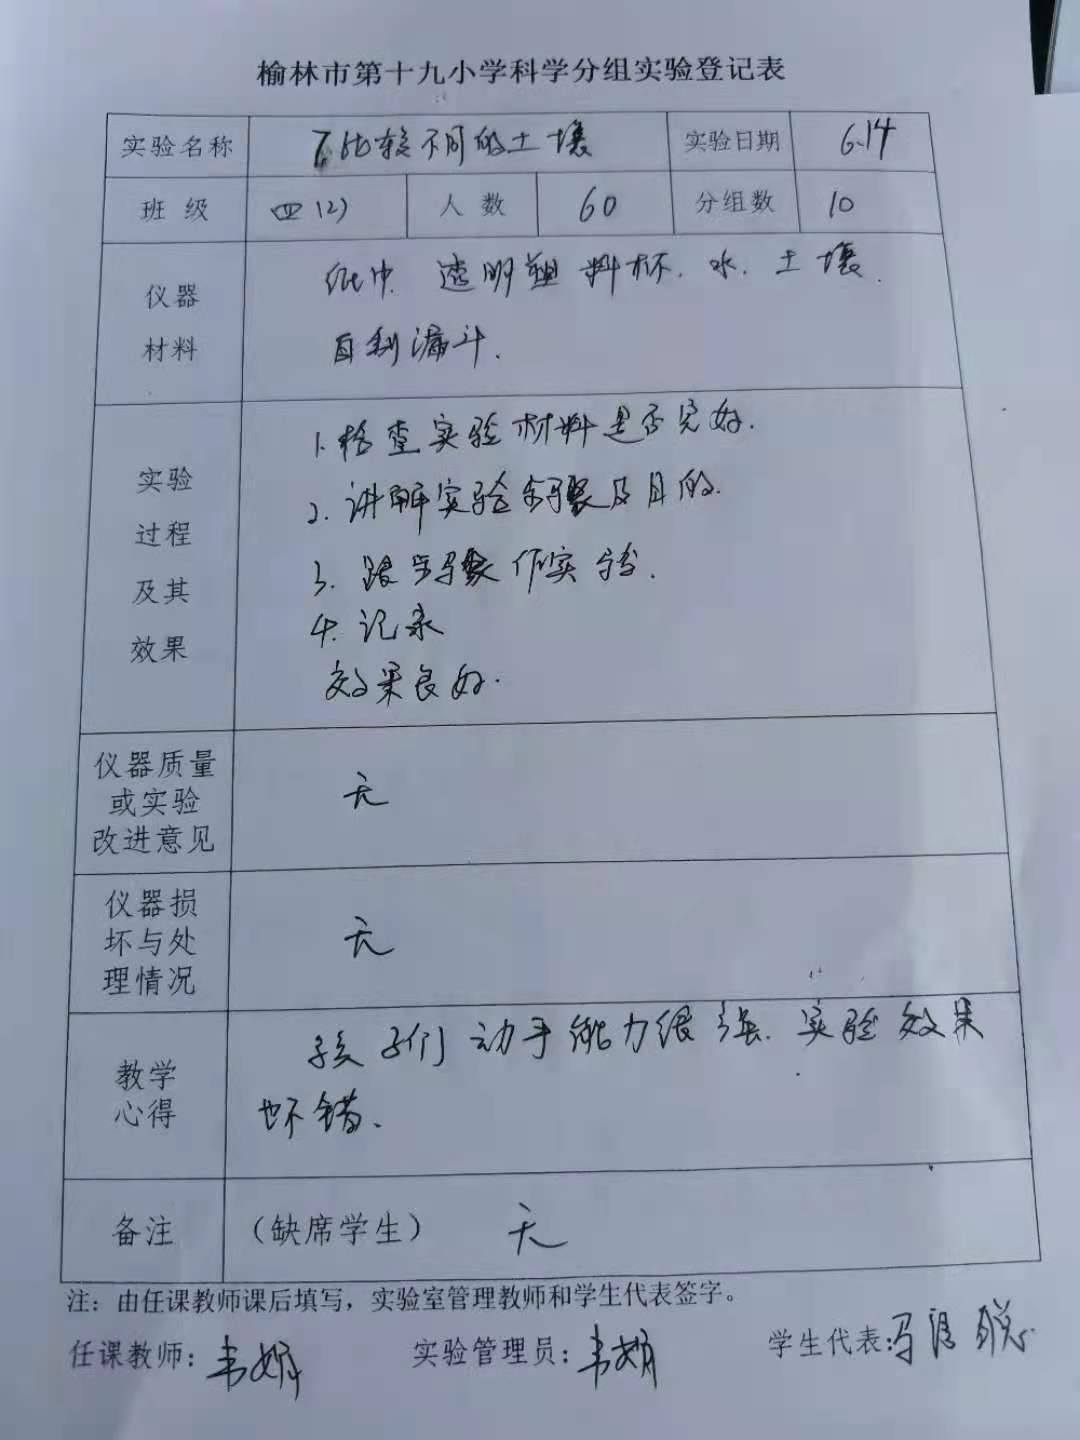 榆林市第十九小学科学分组实验登记表
实验名称 比较不同的土壤 实验日期 6.14
班 级 四(2) 人 数 60 分组数 10
仪器
材料
纸巾. 透明塑料杯. 水. 土壤.
自制漏斗.
实验
过程
及其
效果
1. 检查实验材料是否完好.
2. 讲解实验步骤及目的.
3. 跟步骤作实验.
4. 记录
效果良好.
仪器质量
或实验
改进意见
无
仪器损
坏与处
理情况
无
教学
心得
孩子们动手能力很强. 实验效果
也不错.
备注 (缺席学生) 无
注：由任课教师课后填写，实验室管理教师和学生代表签字。
任课教师: 韦娟 实验管理员: 韦娟 学生代表: 冯